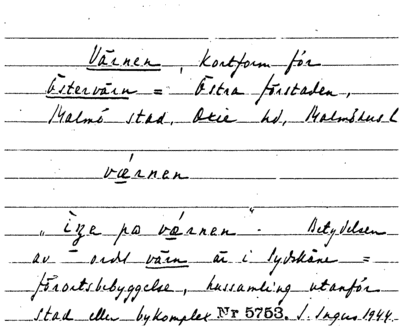 Värnen, kortform för
Östervärn = Östra förstaden,
Malmö stad, Oxie hd, Malmöhus l
værnen
"iŋe pɔ værnen". Betydelsen
av ordet värn är i Sydskåne =
förortsbebyggelse, hussamling utanför
stad eller bykomplex Nr 5753. S. Ingers 1944.